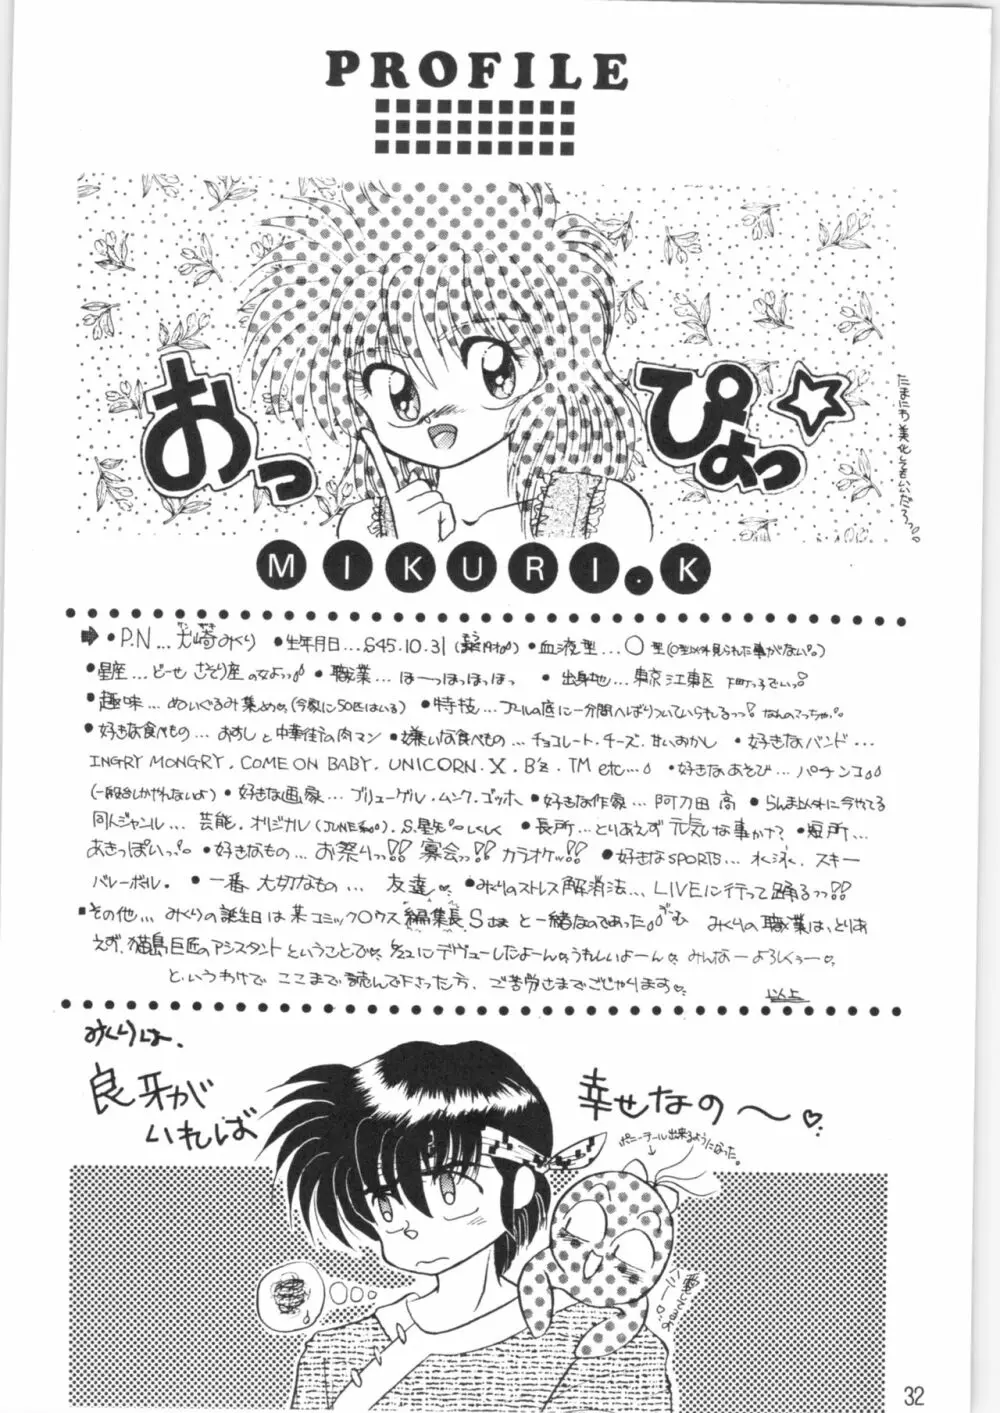 PROFILE
おっ
ぴょっ☆
たまにわ美化してもいいだろっ
MIKURI.K
•P.N...犬崎みくり •生年月日...S45.10.31 •血液型...O型(O型以外見られた事がない。)
•星座...どーせさそり座の女よっ •職業...ほーっほっほっほっ •出身地...東京江東区
•趣味...ぬいぐるみ集め(今家に50匹はいる) •特技...プールの底に一分間へばりついていられるっっ! なんのこっちゃ。
•好きな食べもの...おすしと中華街の肉マン •嫌いな食べもの...チョコレート・チーズ.甘いおかし •好きなバンド...
INGRY MONGRY. COME ON BABY. UNICORN. X. B'z. TM etc... •好きなあそび...パチンコ
•好きな画家...ブリューゲル.ムンク.ゴッホ •好きな作家...阿刀田 高 •らんま以外に今やってる
同人ジャンル...芸能.オリジナル(JUNE系).S.星矢 しくしく •長所...とりあえず元気な事かな? •短所...
あきっぽいっ •好きなもの...お祭りっ!! 宴会っ!! カラオケッ!! •好きなSPORTS...水泳.スキー
バレーボール. •一番大切なもの...友達 •みくりのストレス解消法...LIVEに行って踊るっっ!!
•その他...みくりの誕生日は某コミック〇ウス編集長Sさまと一緒なのであった みくりの職業は、とりあ
えず、猫島巨匠のアシスタントということで デヴューしたよーん うれしいよーん みんなーよろしくぅー
というわけで ここまで読んで下さった方、ご苦労さまでごじゃります 以上
みくりは、
良牙が
いれば
幸せなの〜♡
ポニーテール出来るようになった。
32